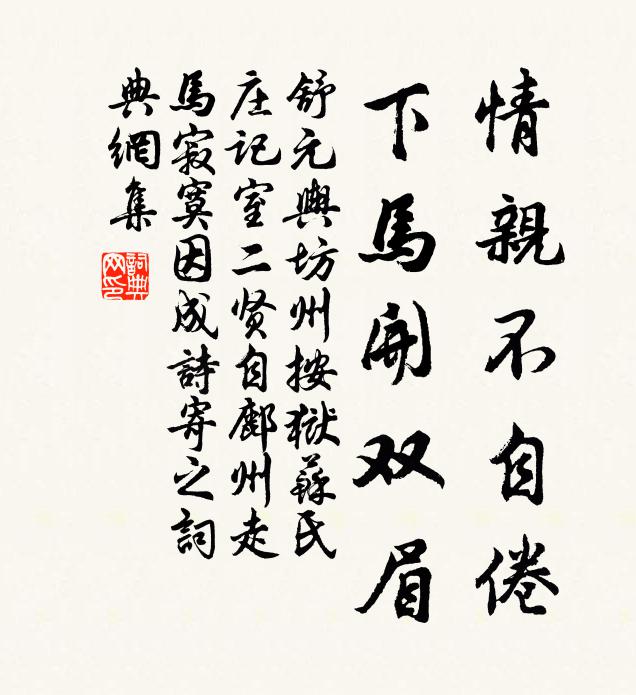 情親不自倦
下馬開双眉
舒元輿坊州按獄蘇氏
庄记室二贤自鄜州走
馬寂寞因成詩寄之詞
典網集
詞典网印